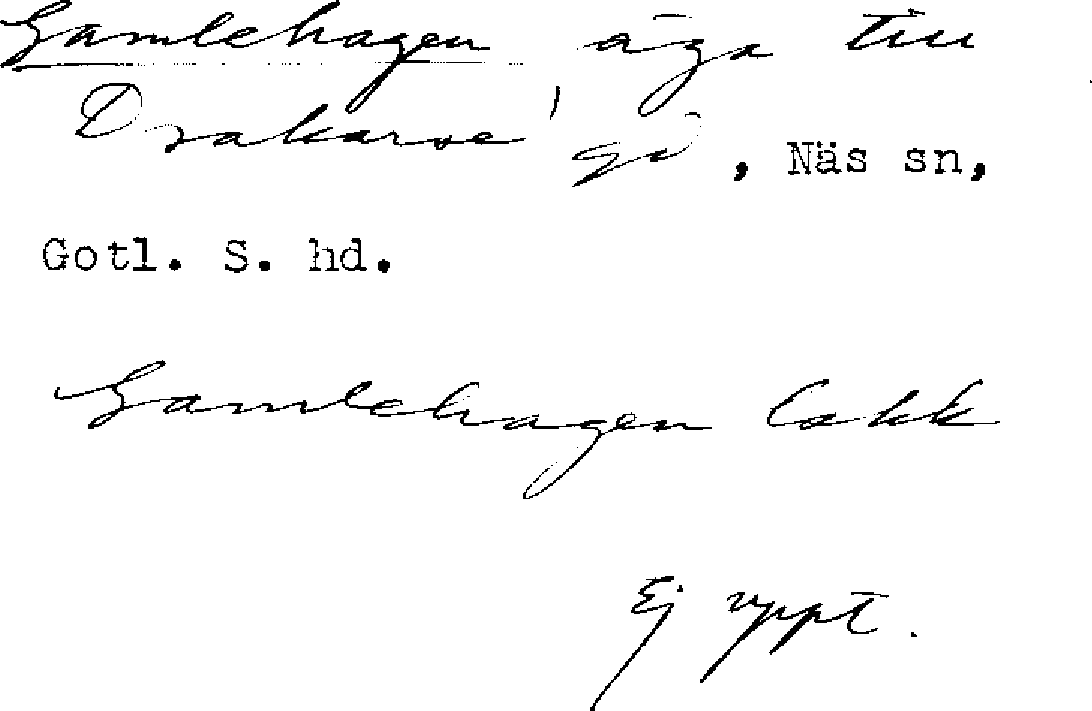 Gamlehagen, äga till
Drakarve gd, Näs sn,
Gotl. S. hd.
Gamlehagen Lskk
Ej uppt.